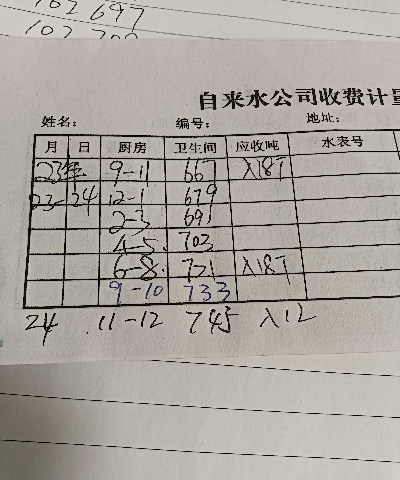 102 697
自来水公司收费计量
姓名： 编号： 地址：
月 日 厨房 卫生间 应收吨 水表号
23年 9-11 667 入18T
23-24 12-1 679
2-3 691
4-5 703
6-8 721 入18T
9-10 733
24 11-12 745 入12